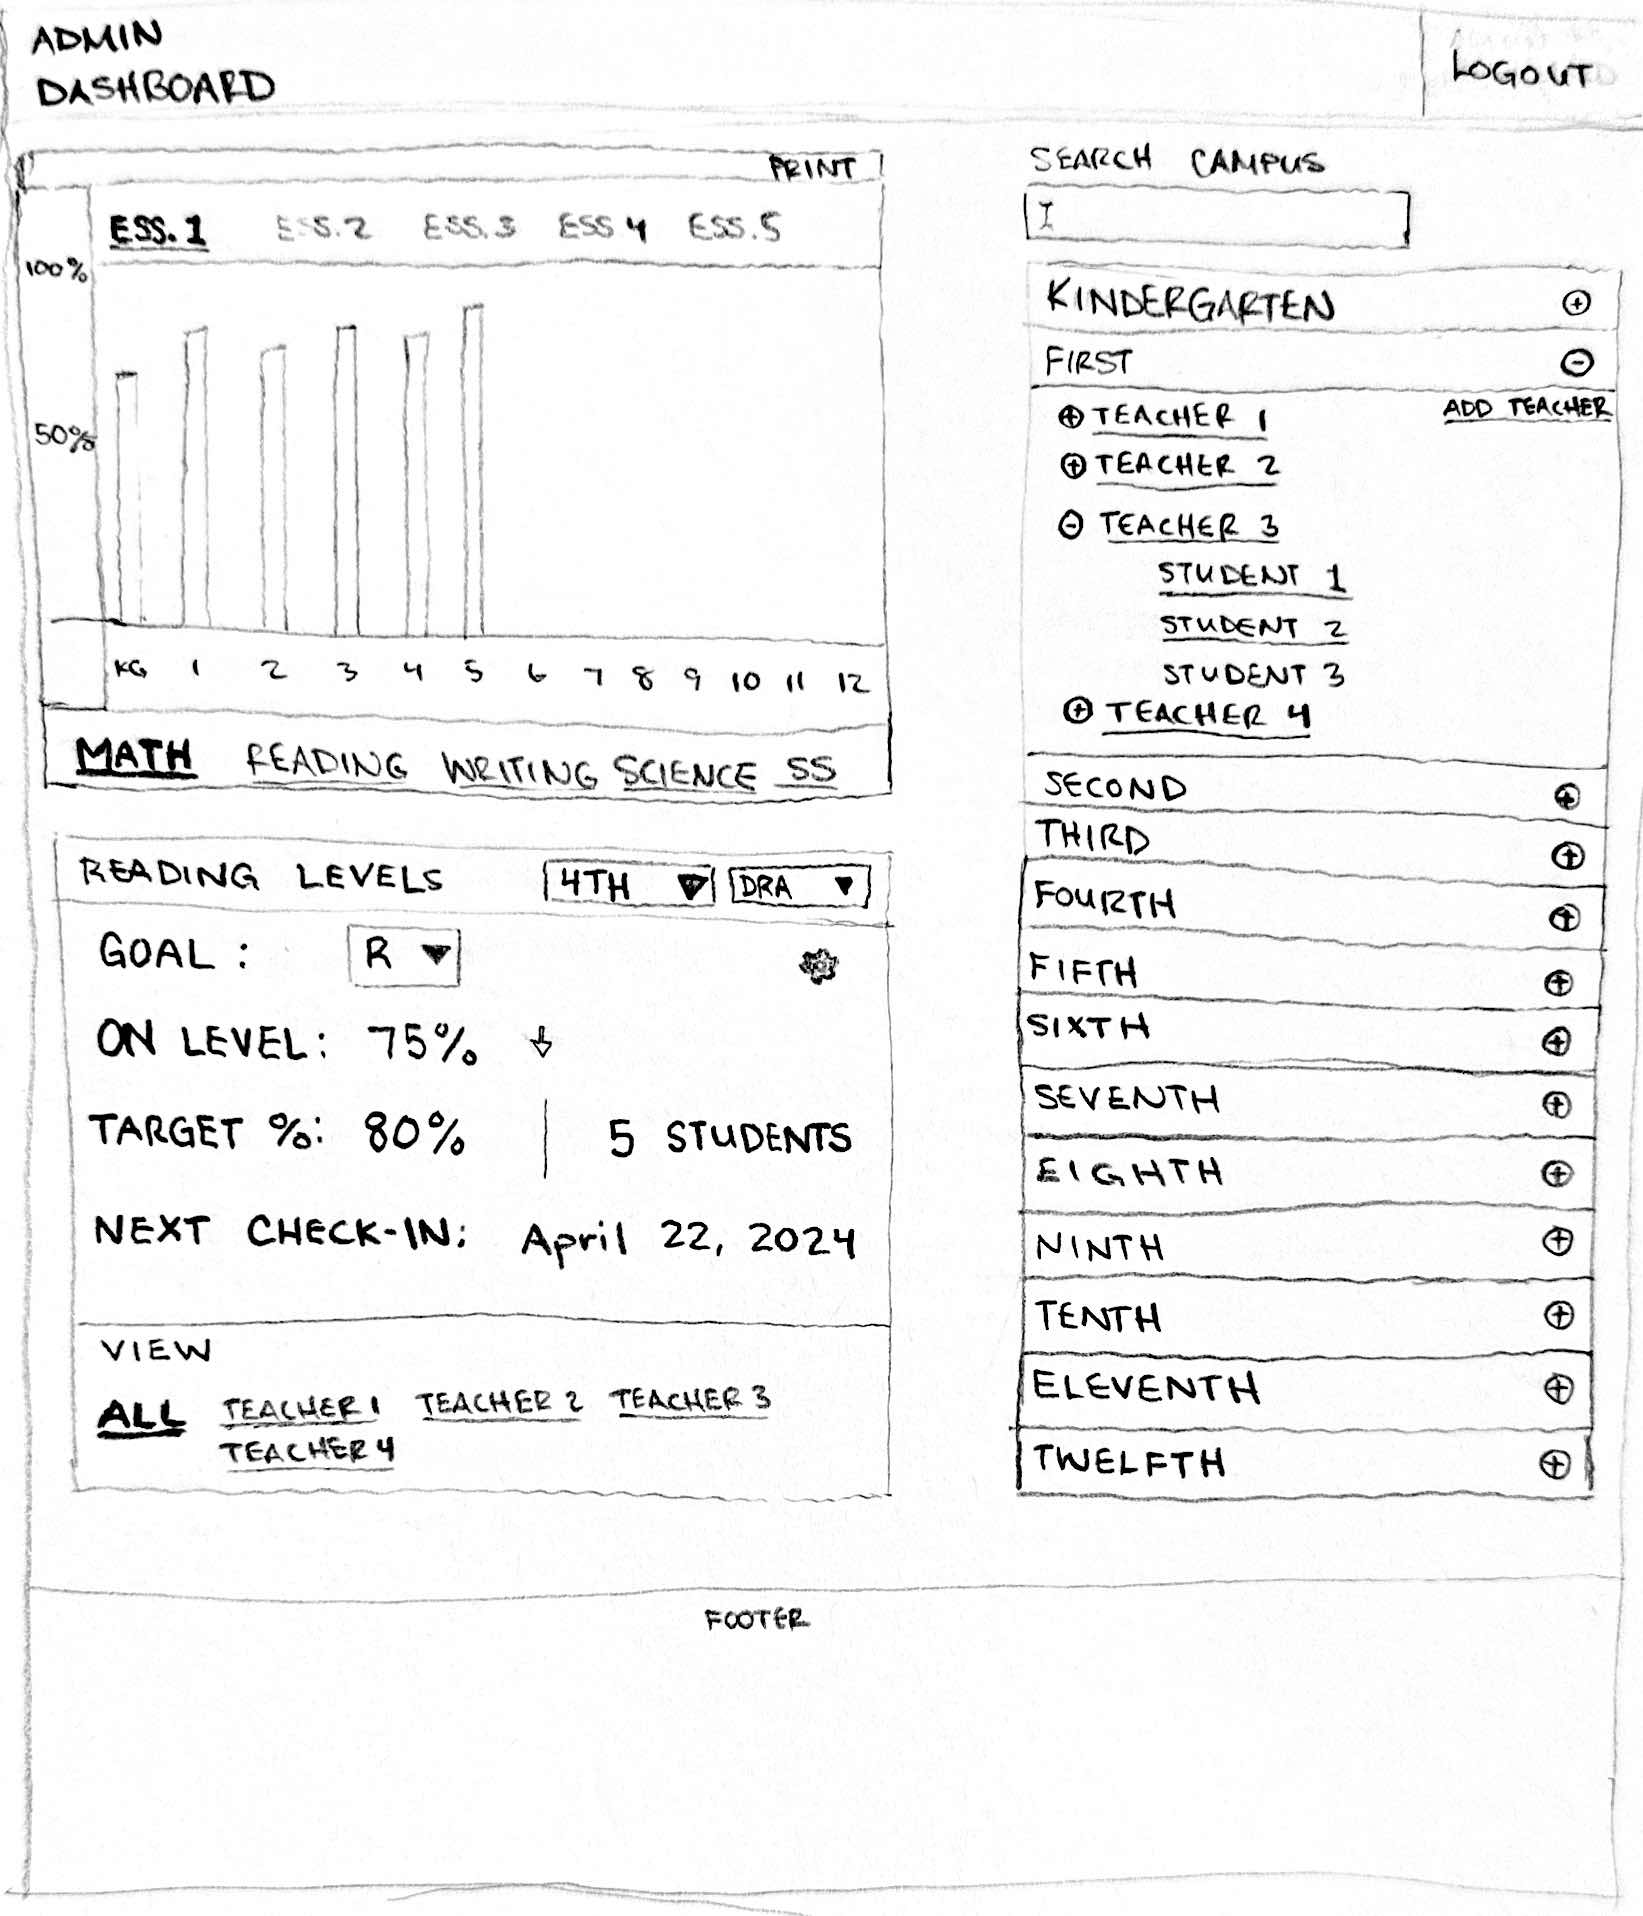 ADMIN
DASHBOARD
LOGOUT
PRINT
ESS.1 ESS.2 ESS.3 ESS 4 ESS.5
100%
50%
KG 1 2 3 4 5 6 7 8 9 10 11 12
MATH READING WRITING SCIENCE SS
READING LEVELS 4TH DRA
GOAL : R
ON LEVEL: 75%
TARGET %: 80% 5 STUDENTS
NEXT CHECK-IN: April 22, 2024
VIEW
ALL TEACHER 1 TEACHER 2 TEACHER 3
TEACHER 4
SEARCH CAMPUS
KINDERGARTEN
FIRST
ADD TEACHER
TEACHER 1
TEACHER 2
TEACHER 3
STUDENT 1
STUDENT 2
STUDENT 3
TEACHER 4
SECOND
THIRD
FOURTH
FIFTH
SIXTH
SEVENTH
EIGHTH
NINTH
TENTH
ELEVENTH
TWELFTH
FOOTER